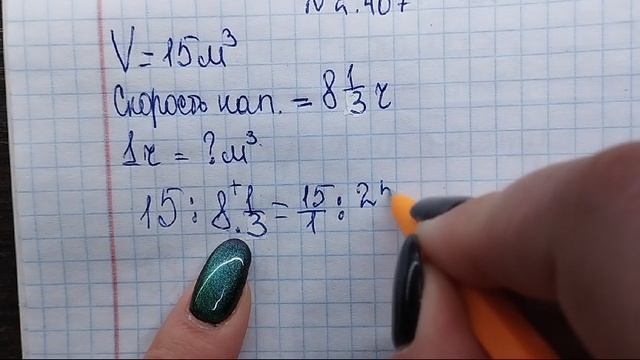 № 2.407
V = 15 м³
Скорость нап. = 8 1/3 ч
1ч = ? м³
15 : 8 1/3 = 15/1 : 2